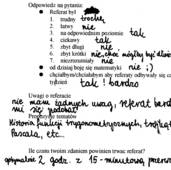 Odpowiedz na pytania:
● Referat był
1. trudny trochę
2. łatwy nie
3. na odpowiednim poziomie tak
4. ciekawy tak
5. zbyt długi nie
6. zbyt krótki nie, choć mógłby być dłuższy
7. niezrozumiały nie
● od dzisiaj boję się matematyki nie :)
● chciałbym/chciałabym aby referaty odbywały się co
tydzień tak! bardzo
Uwagi o referacie
nie mam żadnych uwag, referat bardzo
mi się podobał
Propozycje tematów
Historia funkcji trygonometrycznych, trójkąt
Pascala, etc...
Ile czasu twoim zdaniem powinien trwać referat?
optymalnie 2 godz. z 15-minutową przerwą